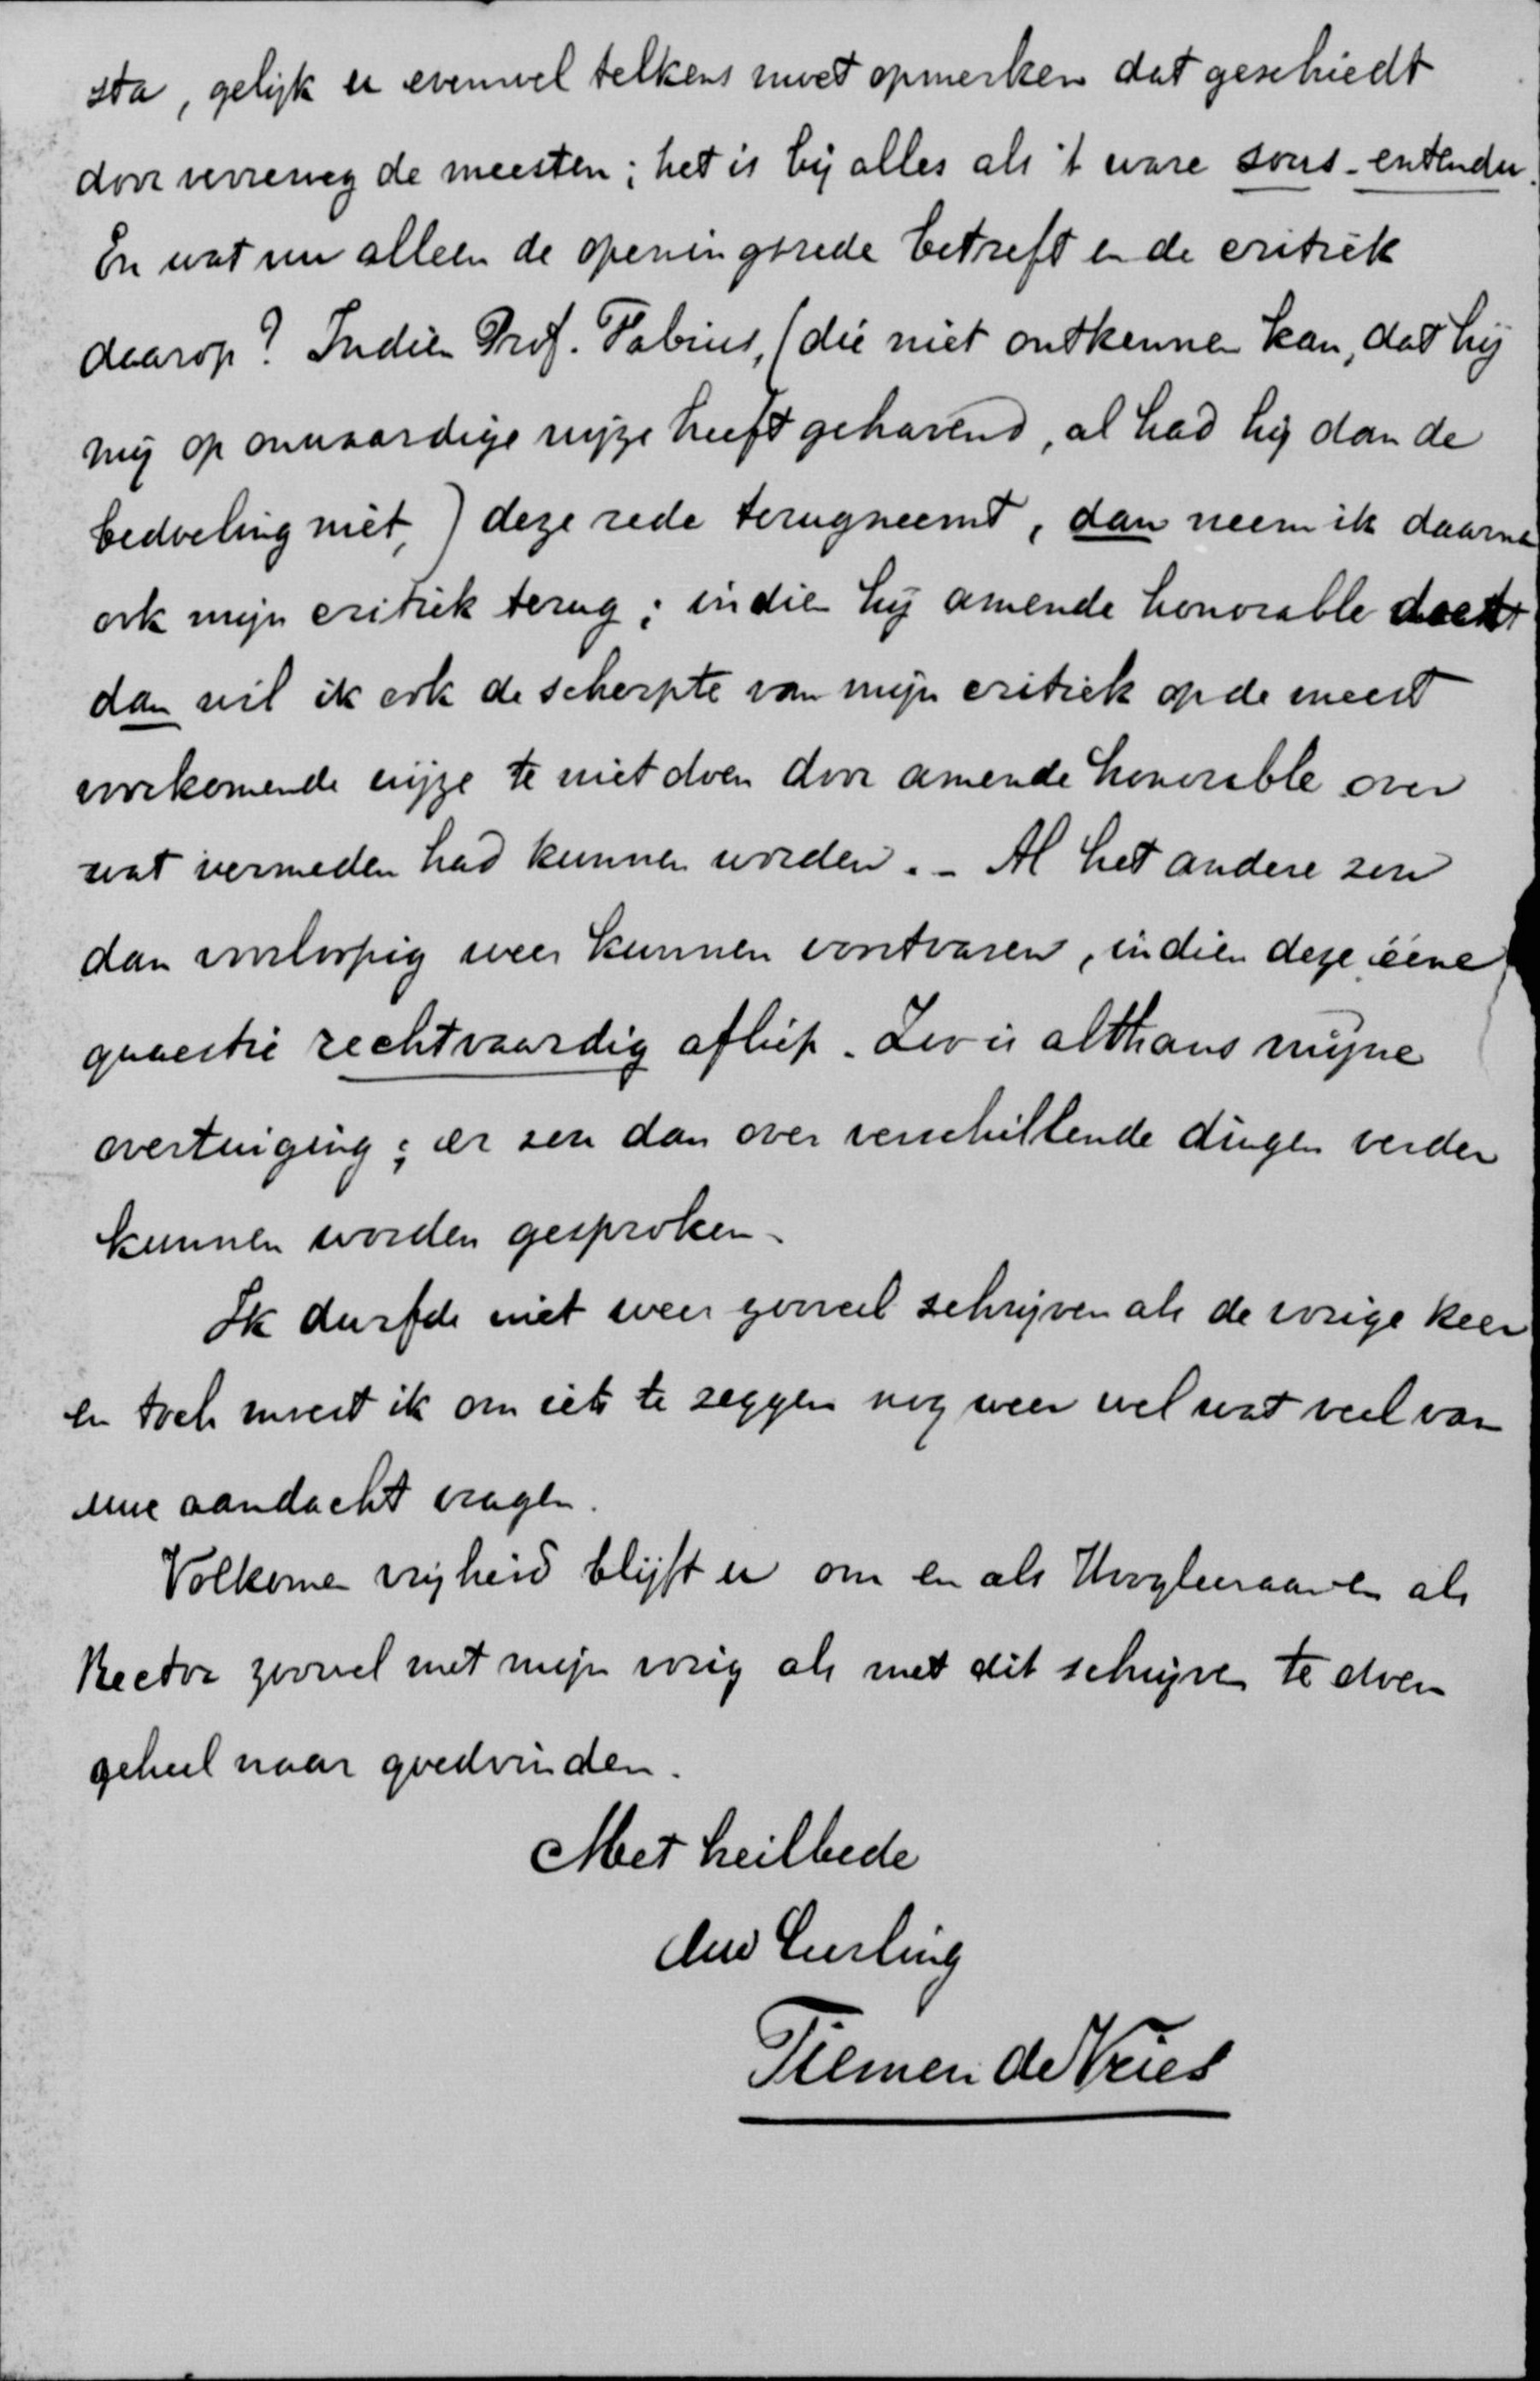 sta, gelijk er evenwel telkens moet opmerken dat geschiedt
door verreweg de meesten; het is bij alles als 't ware sous-entendu.
En wat nu alleen de openingsrede betreft en de critiek
daarop? Indien Prof. Fabius, (die niet ontkennen kan, dat hij
mij op onwaardige wijze heeft gehavend, al had hij dan de
bedoeling niet,) deze rede terugneemt, dan neem ik daarna
ook mijn critiek terug; indien hij amende honorable doet
dan wil ik ook de scherpte van mijn critiek op de meest
voorkomende wijze te niet doen door amende honorable over
wat vermeden had kunnen worden. - Al het andere zou
dan voorloopig weer kunnen voortvaren, indien deze ééne
quaestie rechtvaardig afliep. Zoo is althans mijne
overtuiging; er zou dan over verschillende dingen verder
kunnen worden gesproken.
Ik durfde niet weer zooveel schrijven als de vorige keer
en toch moest ik om iets te zeggen nog weer wel wat veel van
uwe aandacht vragen.
Volkomen vrijheid blijft er om en als Hoogleeraar en als
Rector zoowel met mijn vorig als met dit schrijven te doen
geheel naar goedvinden.
Met heilbede
Uw leerling
Tiemen de Vries